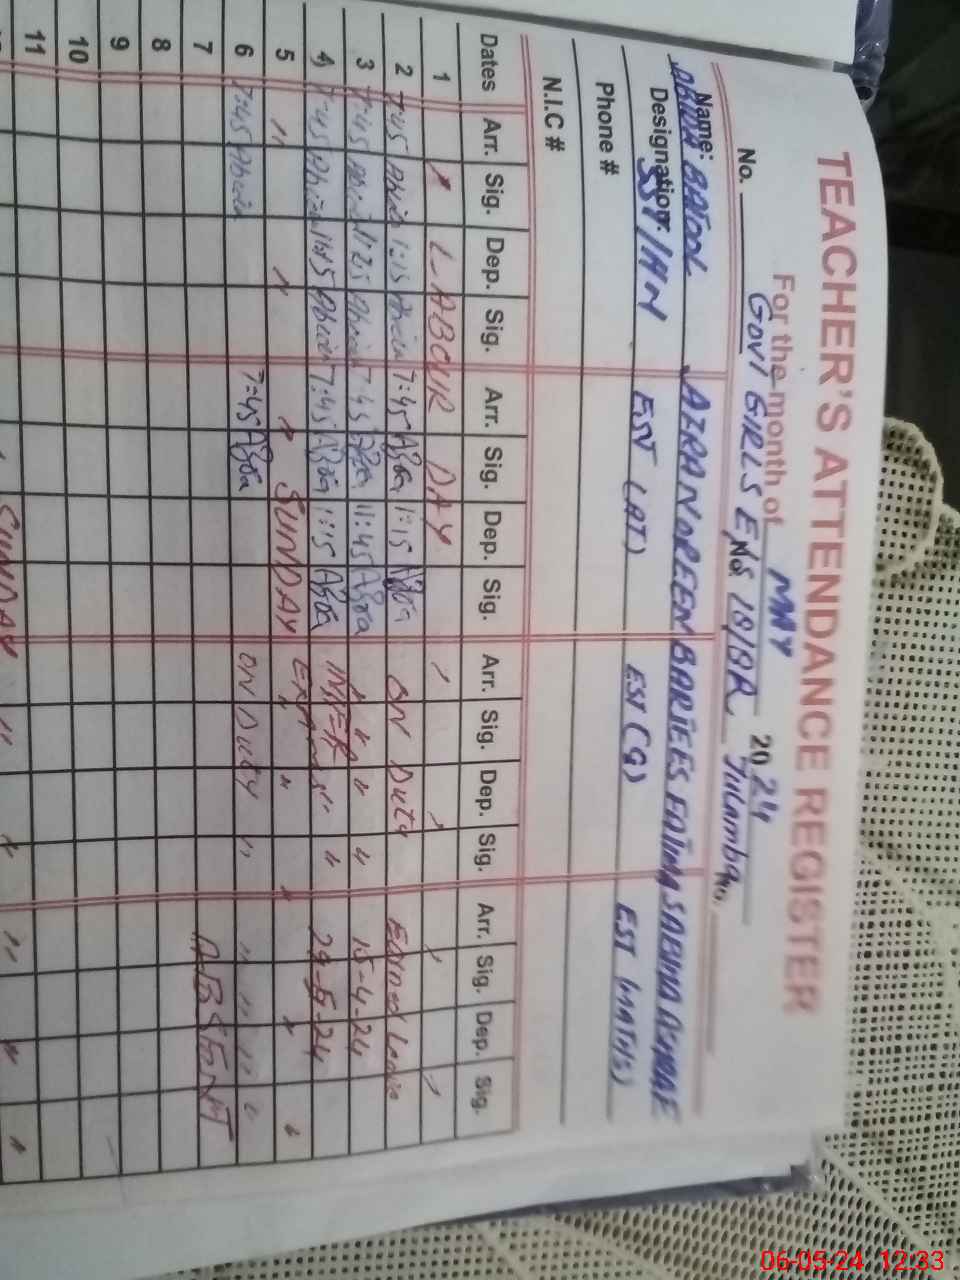 TEACHER'S ATTENDANCE REGISTER
For the month of MAY 2024
No. GOVT GIRLS E/S 18/8R Tulamba No.
Name: ABIDA BATOOL AZRA NOREEN BARIEES FATIMA SABIHA
Designation: SST/IHN EST (AT) EST (G) EST (MATHS)
Phone #
N.I.C #
Dates Arr. Sig. Dep. Sig. Arr. Sig. Dep. Sig. Arr. Sig. Dep. Sig. Arr. Sig. Dep. Sig.
1 LABOUR DAY
2 7:45 Abida 1:15 Abida 7:45 Azra 1:15 Azra ON Duty Earned Leave
3 7:45 Abida 11:25 Abida 7:45 Azra 11:45 Azra " " " 15-4-24
4 7:45 Abida 1:15 Abida 7:45 Azra 1:15 Azra INTER " 29-5-24
5 " " " SUNDAY " " " "
6 7:45 Abida 7:45 Azra ON Duty " " " " "
7 ABSENT
8
9
10
11
SUNDAY " " " " "
06-05-24 12:33